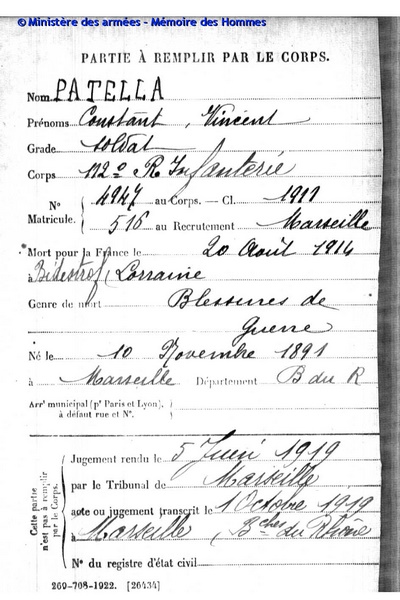 © Ministère des armées - Mémoire des Hommes
PARTIE À REMPLIR PAR LE CORPS.
Nom PATELLA
Prénoms Constant, Vincent
Grade soldat
Corps 112e R Infanterie
N° Matricule. { 4947 au Corps. — Cl. 1911
516 au Recrutement Marseille
Mort pour la France le 20 Août 1914
à Bidestrof, Lorraine
Genre de mort Blessures de
Guerre
Né le 10 Novembre 1891
à Marseille Département B du R
Arrt municipal (pr Paris et Lyon),
à défaut rue et N°.
Cette partie n'est pas à remplir par le Corps.
Jugement rendu le 5 Juin 1919
par le Tribunal de Marseille
acte ou jugement transcrit le 1 Octobre 1919
à Marseille Bches du Rhône
N° du registre d'état civil
269-708-1922. [26434]